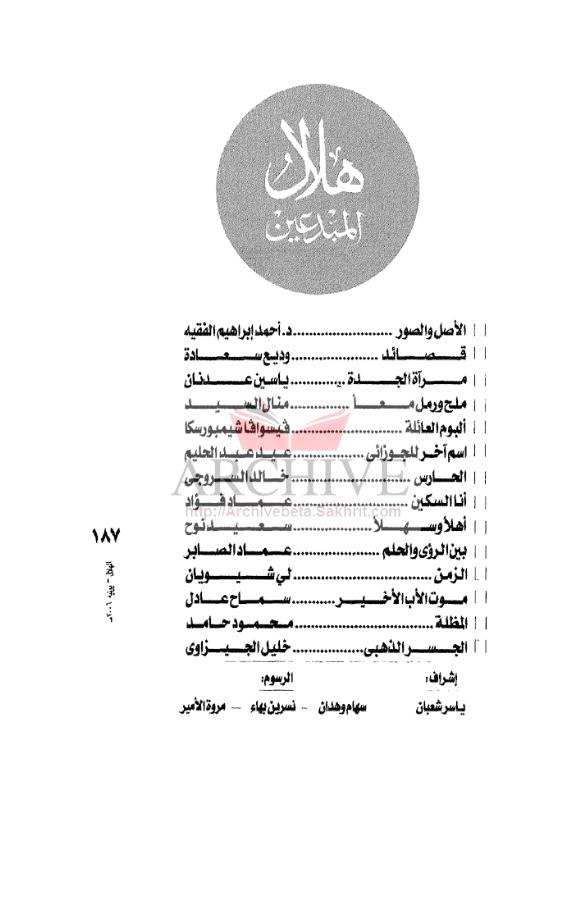 هلال
المبدعين
الأصل والصور ........................ د. أحمد إبراهيم الفقيه
قصائد ..................... وديع سعادة
مرآة الجدة ............. ياسين عدنان
ملح ورمل معاً ............... منال السيد
ألبوم العائلة ........................... ڤيسوافا شيمبورسكا
اسم آخر للجوزائى ............... عيد عبد الحليم
الحارس ............................. خالد السروجى
أنا السكين ........................... عماد فؤاد
أهلاً وسهلاً .................... سعيد نوح
بين الرؤى والحلم ..................... عماد الصابر
الزمن .................................. لي شيويان
موت الأب الأخير .......... سماح عادل
المظلة .................................. محمود حامد
الجسر الذهبى ................. خليل الجيزاوى
إشراف:
ياسر شعبان
الرسوم:
سهام وهدان - نسرين بهاء - مروة الأمير
١٨٧
الهلال - يونيه ٢٠٠٦مـ
ARCHIVE
http://Archivebeta.Sakhrit.com